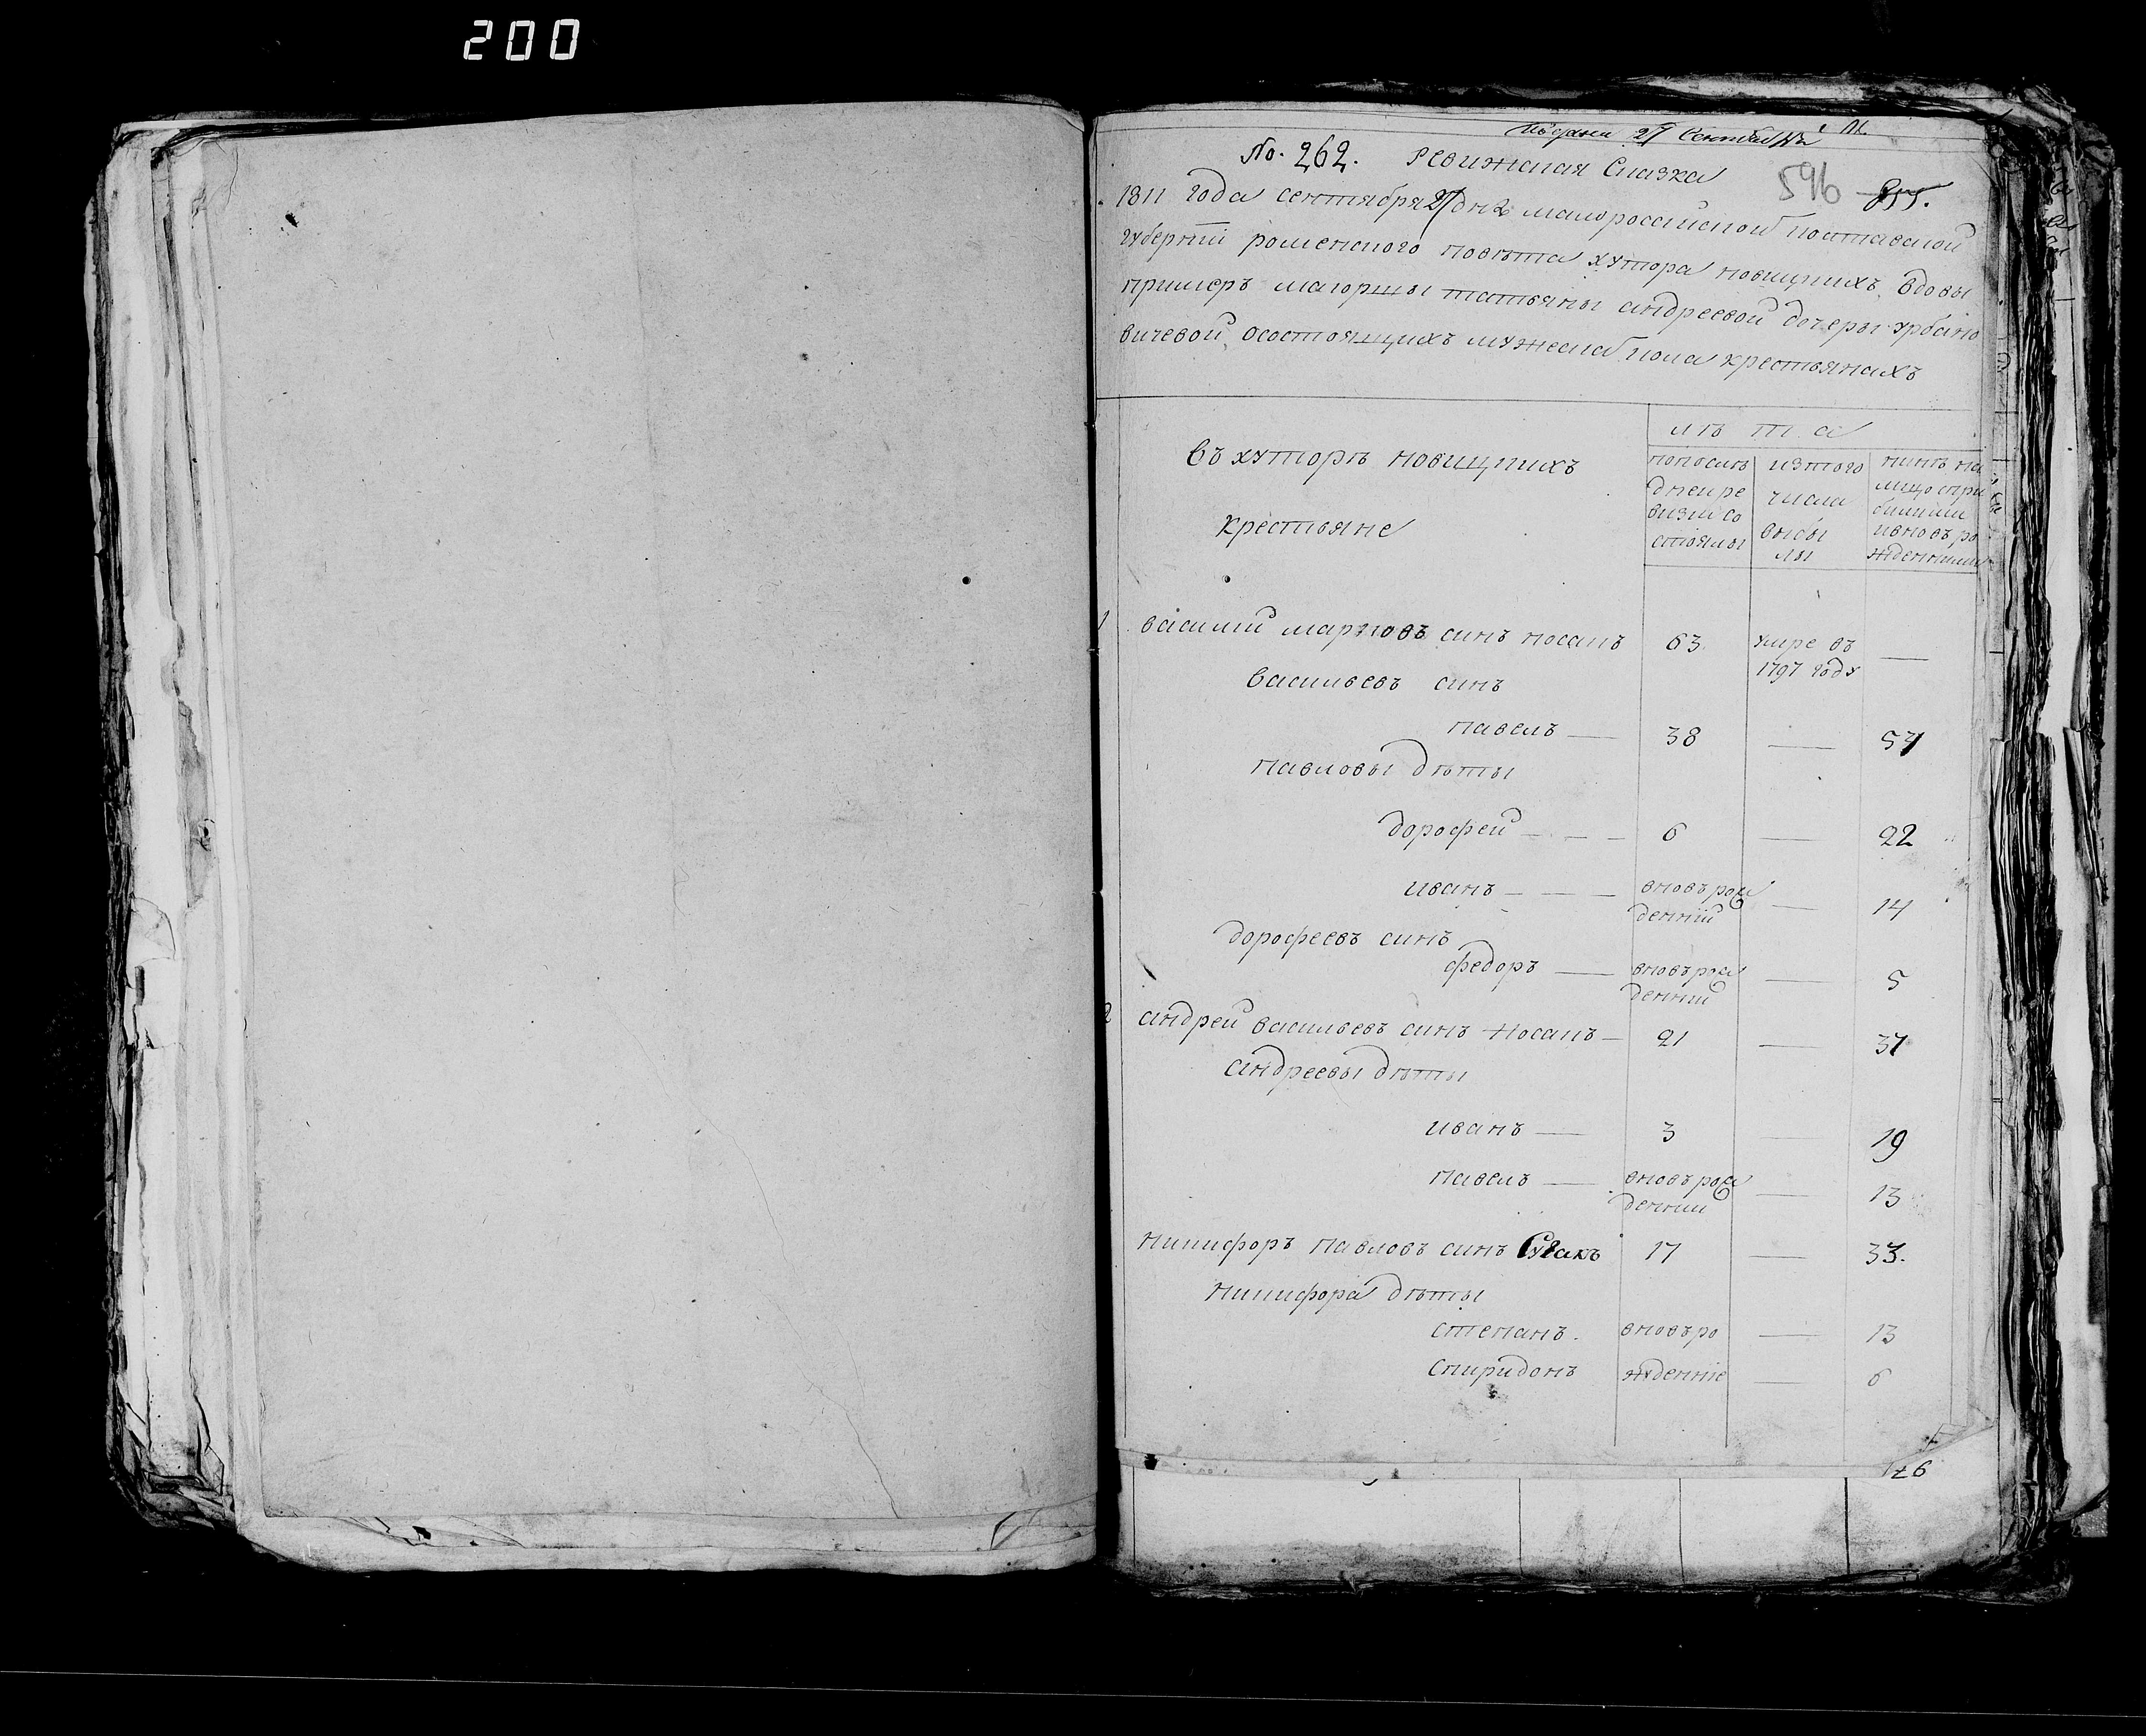 200
27 Сентября
No. 262. Ревижская Сказка
596 855.
1811 года сентября 27 дня малороссийской полтавской
губернїи роменского повѣта хутора новицкихъ вдовы
примеръ маіоршы татьяны андреевой дочеры урбано
вичевой, осостоящихъ мужеска пола крестьянахъ
лѣта
въ хуторѣ новицкихъ
крестьяне
попослѣ
дней ре
визїи со
стоялы
изтого
числа
выбы
лы
нинѣ на
лицо спри
билими
ивновъ ро
жденними
1 василий марковъ синъ носакъ 63 умре въ —
1797 году
васильевъ синъ
павелъ — 38 — 54
павловы дѣты
дорофей — — — 6 — 22
иванъ — — — вновърож
денній — 14
дорофеевъ синъ
федоръ — вновърож
денній — 5
2 андрей васильевъ синъ носакъ — 21 — 37
андреевы дѣты
иванъ — 3 — 19
павелъ — вновърож
денній — 13
никифоръ павловъ синъ 17 — 33.
никифора дѣты
степанъ. вновъро — 13
спиридонъ жденніе — 6